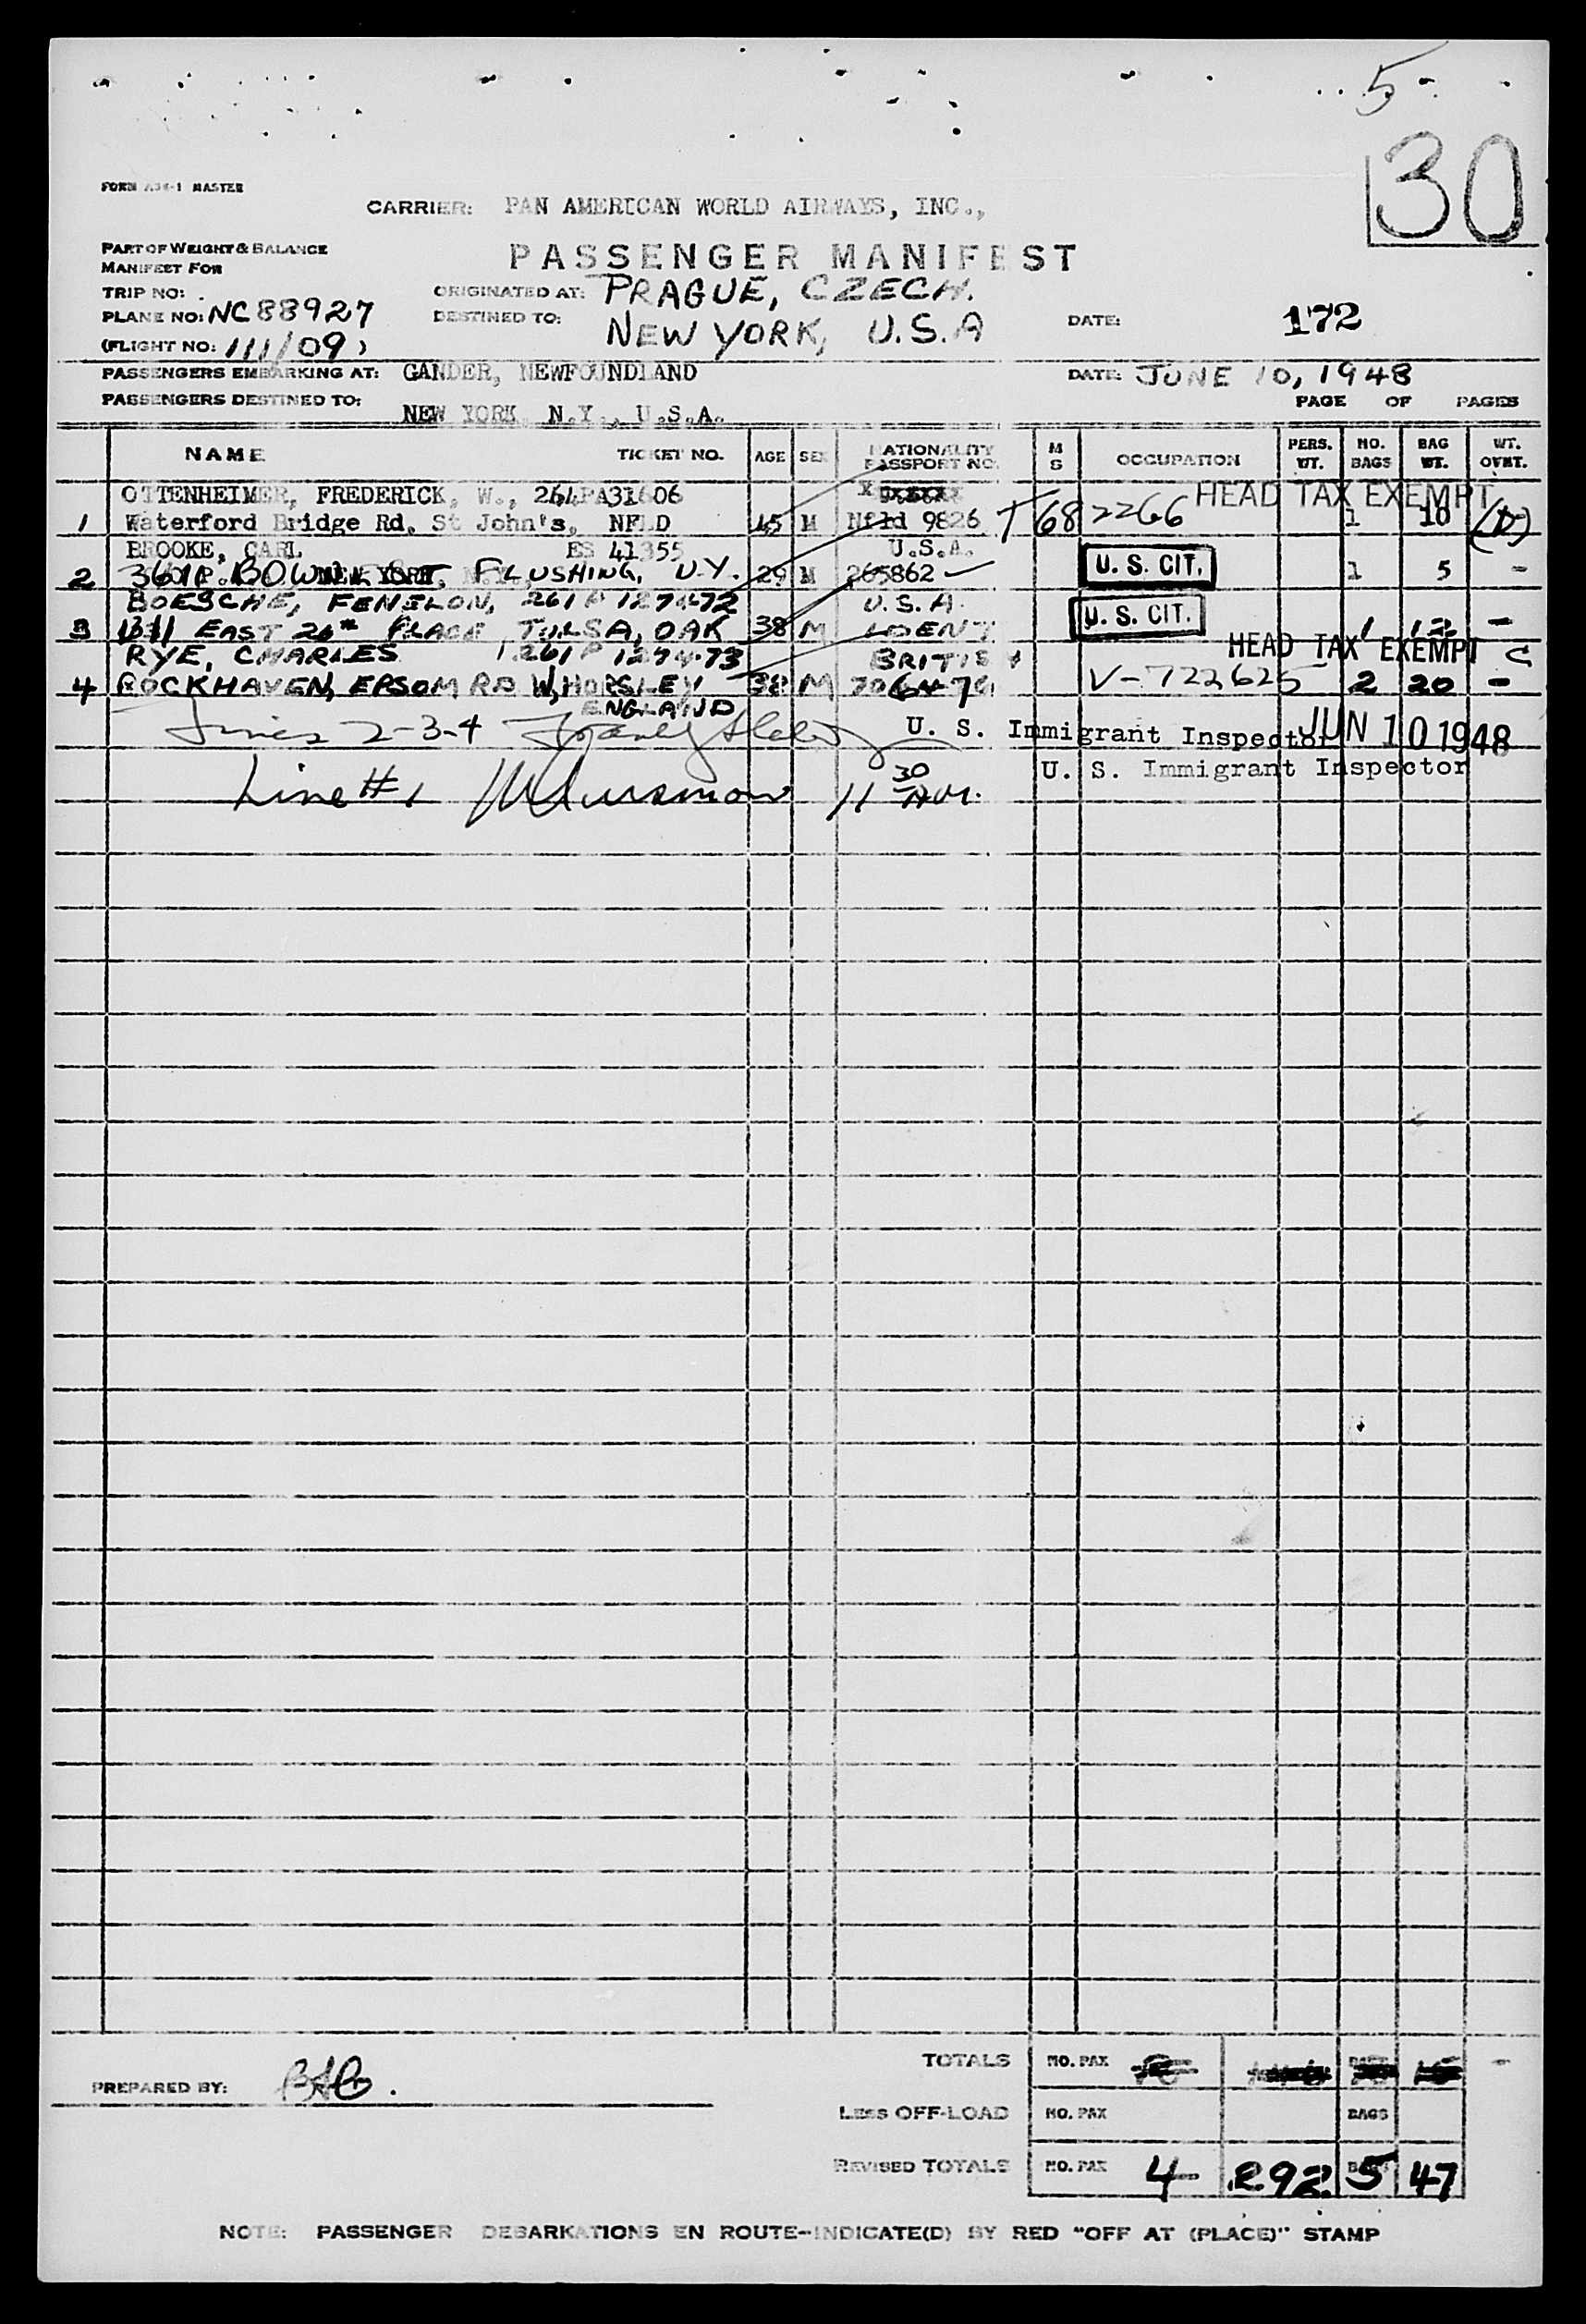 5
30
FORM MASTER
CARRIER: PAN AMERICAN WORLD AIRWAYS, INC.,
PART OF WEIGHT & BALANCE
MANIFEST FOR
PASSENGER MANIFEST
TRIP NO:
ORIGINATED AT: PRAGUE, CZECH.
PLANE NO: NC88927
DESTINED TO: NEW YORK, U.S.A
DATE: 172
(FLIGHT NO: 111/09)
PASSENGERS EMBARKING AT: GANDER, NEWFOUNDLAND DATE: JUNE 10, 1948
PASSENGERS DESTINED TO: NEW YORK N.Y., U.S.A. PAGE OF PAGES
NAME TICKET NO. AGE SEX NATIONALITY PASSPORT NO. M S OCCUPATION PERS. WT. NO. BAGS BAG WT. WT. OVHT.
OTTENHEIMER, FREDERICK, W., 264PA31606 HEAD TAX EXEMPT
1 Waterford Bridge Rd. St John's, NFLD 45 M Nfld 9826 T682266 1 10
BROOKE, CARL ES 41355 U.S.A.
2 BOWNE FLUSHING, N.Y. 29 M 265862 U. S. CIT. 1 5 -
BOESCHE, FENELON, 261P127472 U.S.A.
3 EAST 26th PLACE TULSA, OAK 38 M IDENT U. S. CIT. 1 12 -
RYE, CHARLES 261P127473 BRITISH HEAD TAX EXEMPT C
4 ROCKHAVEN, EPSOM RD W, HORSLEY 38 M V-722625 2 20 -
ENGLAND
Lines 2-3-4 U. S. Immigrant Inspector JUN 10 1948
U. S. Immigrant Inspector
Line #1 11 30 AM.
TOTALS NO. PAX -
PREPARED BY:
LESS OFF-LOAD NO. PAX BAGS
REVISED TOTALS NO. PAX 4 292 BAGS 5 47
NOTE: PASSENGER DEBARKATIONS EN ROUTE--INDICATE(D) BY RED "OFF AT (PLACE)" STAMP